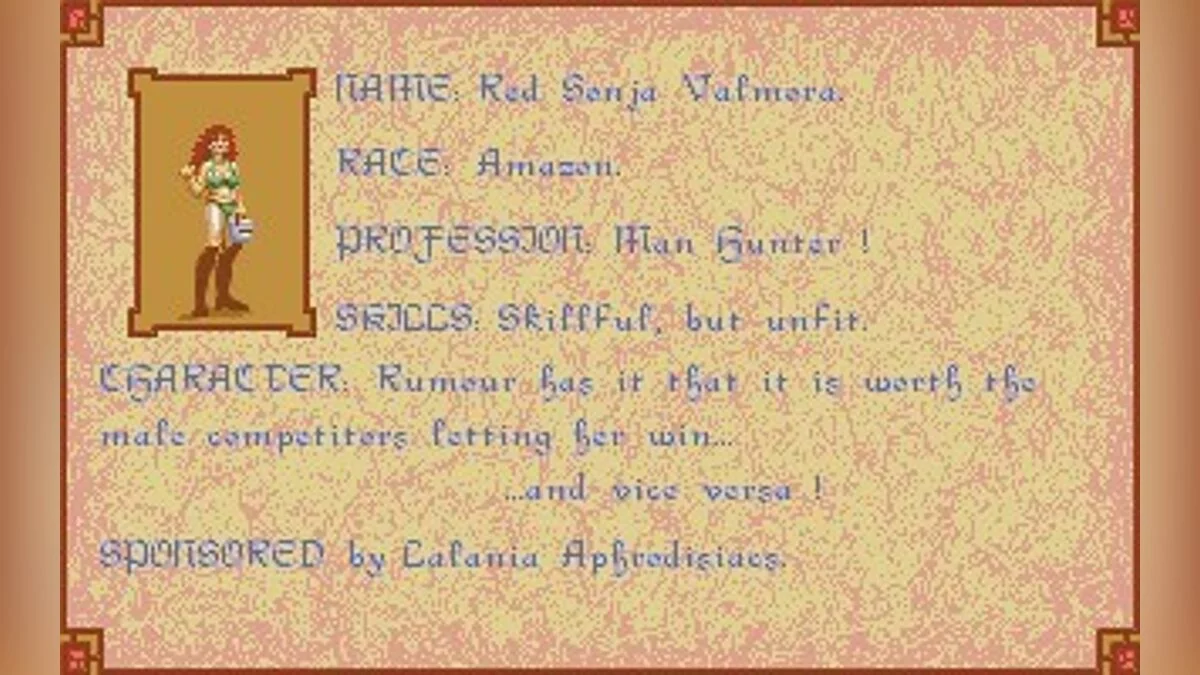 NAME: Red Sonja Valmora.
RACE: Amazon.
PROFESSION: Man Hunter !
SKILLS: Skillful, but unfit.
CHARACTER: Rumour has it that it is worth the
male competitors letting her win...
...and vice versa !
SPONSORED by Lalania Aphrodisiacs.